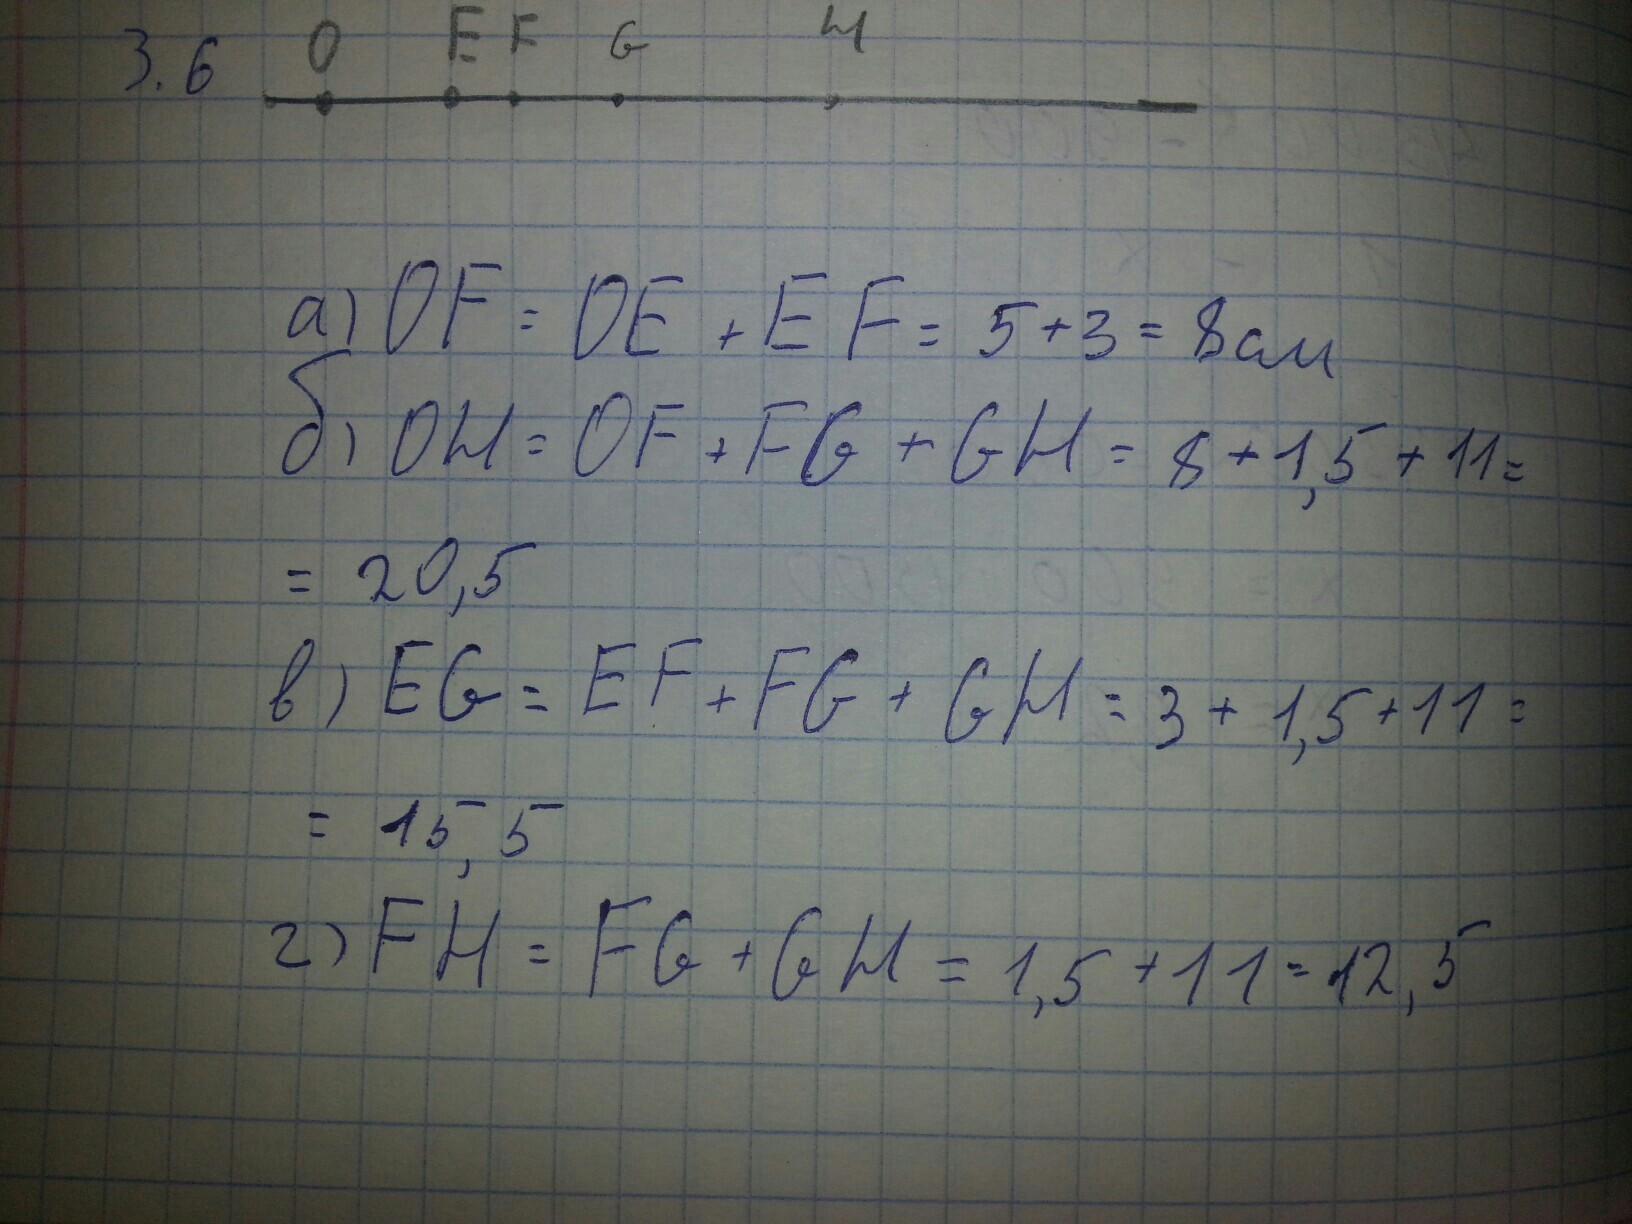 3.6 O E F G H
а) OF = OE + EF = 5 + 3 = 8 см
б) OH = OF + FG + GH = 8 + 1,5 + 11 =
= 20,5
в) EG = EF + FG + GH = 3 + 1,5 + 11 =
= 15,5
г) FH = FG + GH = 1,5 + 11 = 12,5